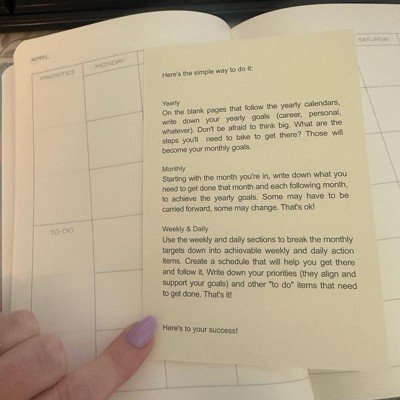 APRIL
PRIORITIES
MONDAY
TO-DO
Here's the simple way to do it:
Yearly
On the blank pages that follow the yearly calendars,
write down your yearly goals (career, personal,
whatever). Don't be afraid to think big. What are the
steps you'll need to take to get there? Those will
become your monthly goals.
Monthly
Starting with the month you're in, write down what you
need to get done that month and each following month,
to achieve the yearly goals. Some may have to be
carried forward, some may change. That's ok!
Weekly & Daily
Use the weekly and daily sections to break the monthly
targets down into achievable weekly and daily action
items. Create a schedule that will help you get there
and follow it. Write down your priorities (they align and
support your goals) and other "to do" items that need
to get done. That's it!
Here's to your success!
SATURDAY